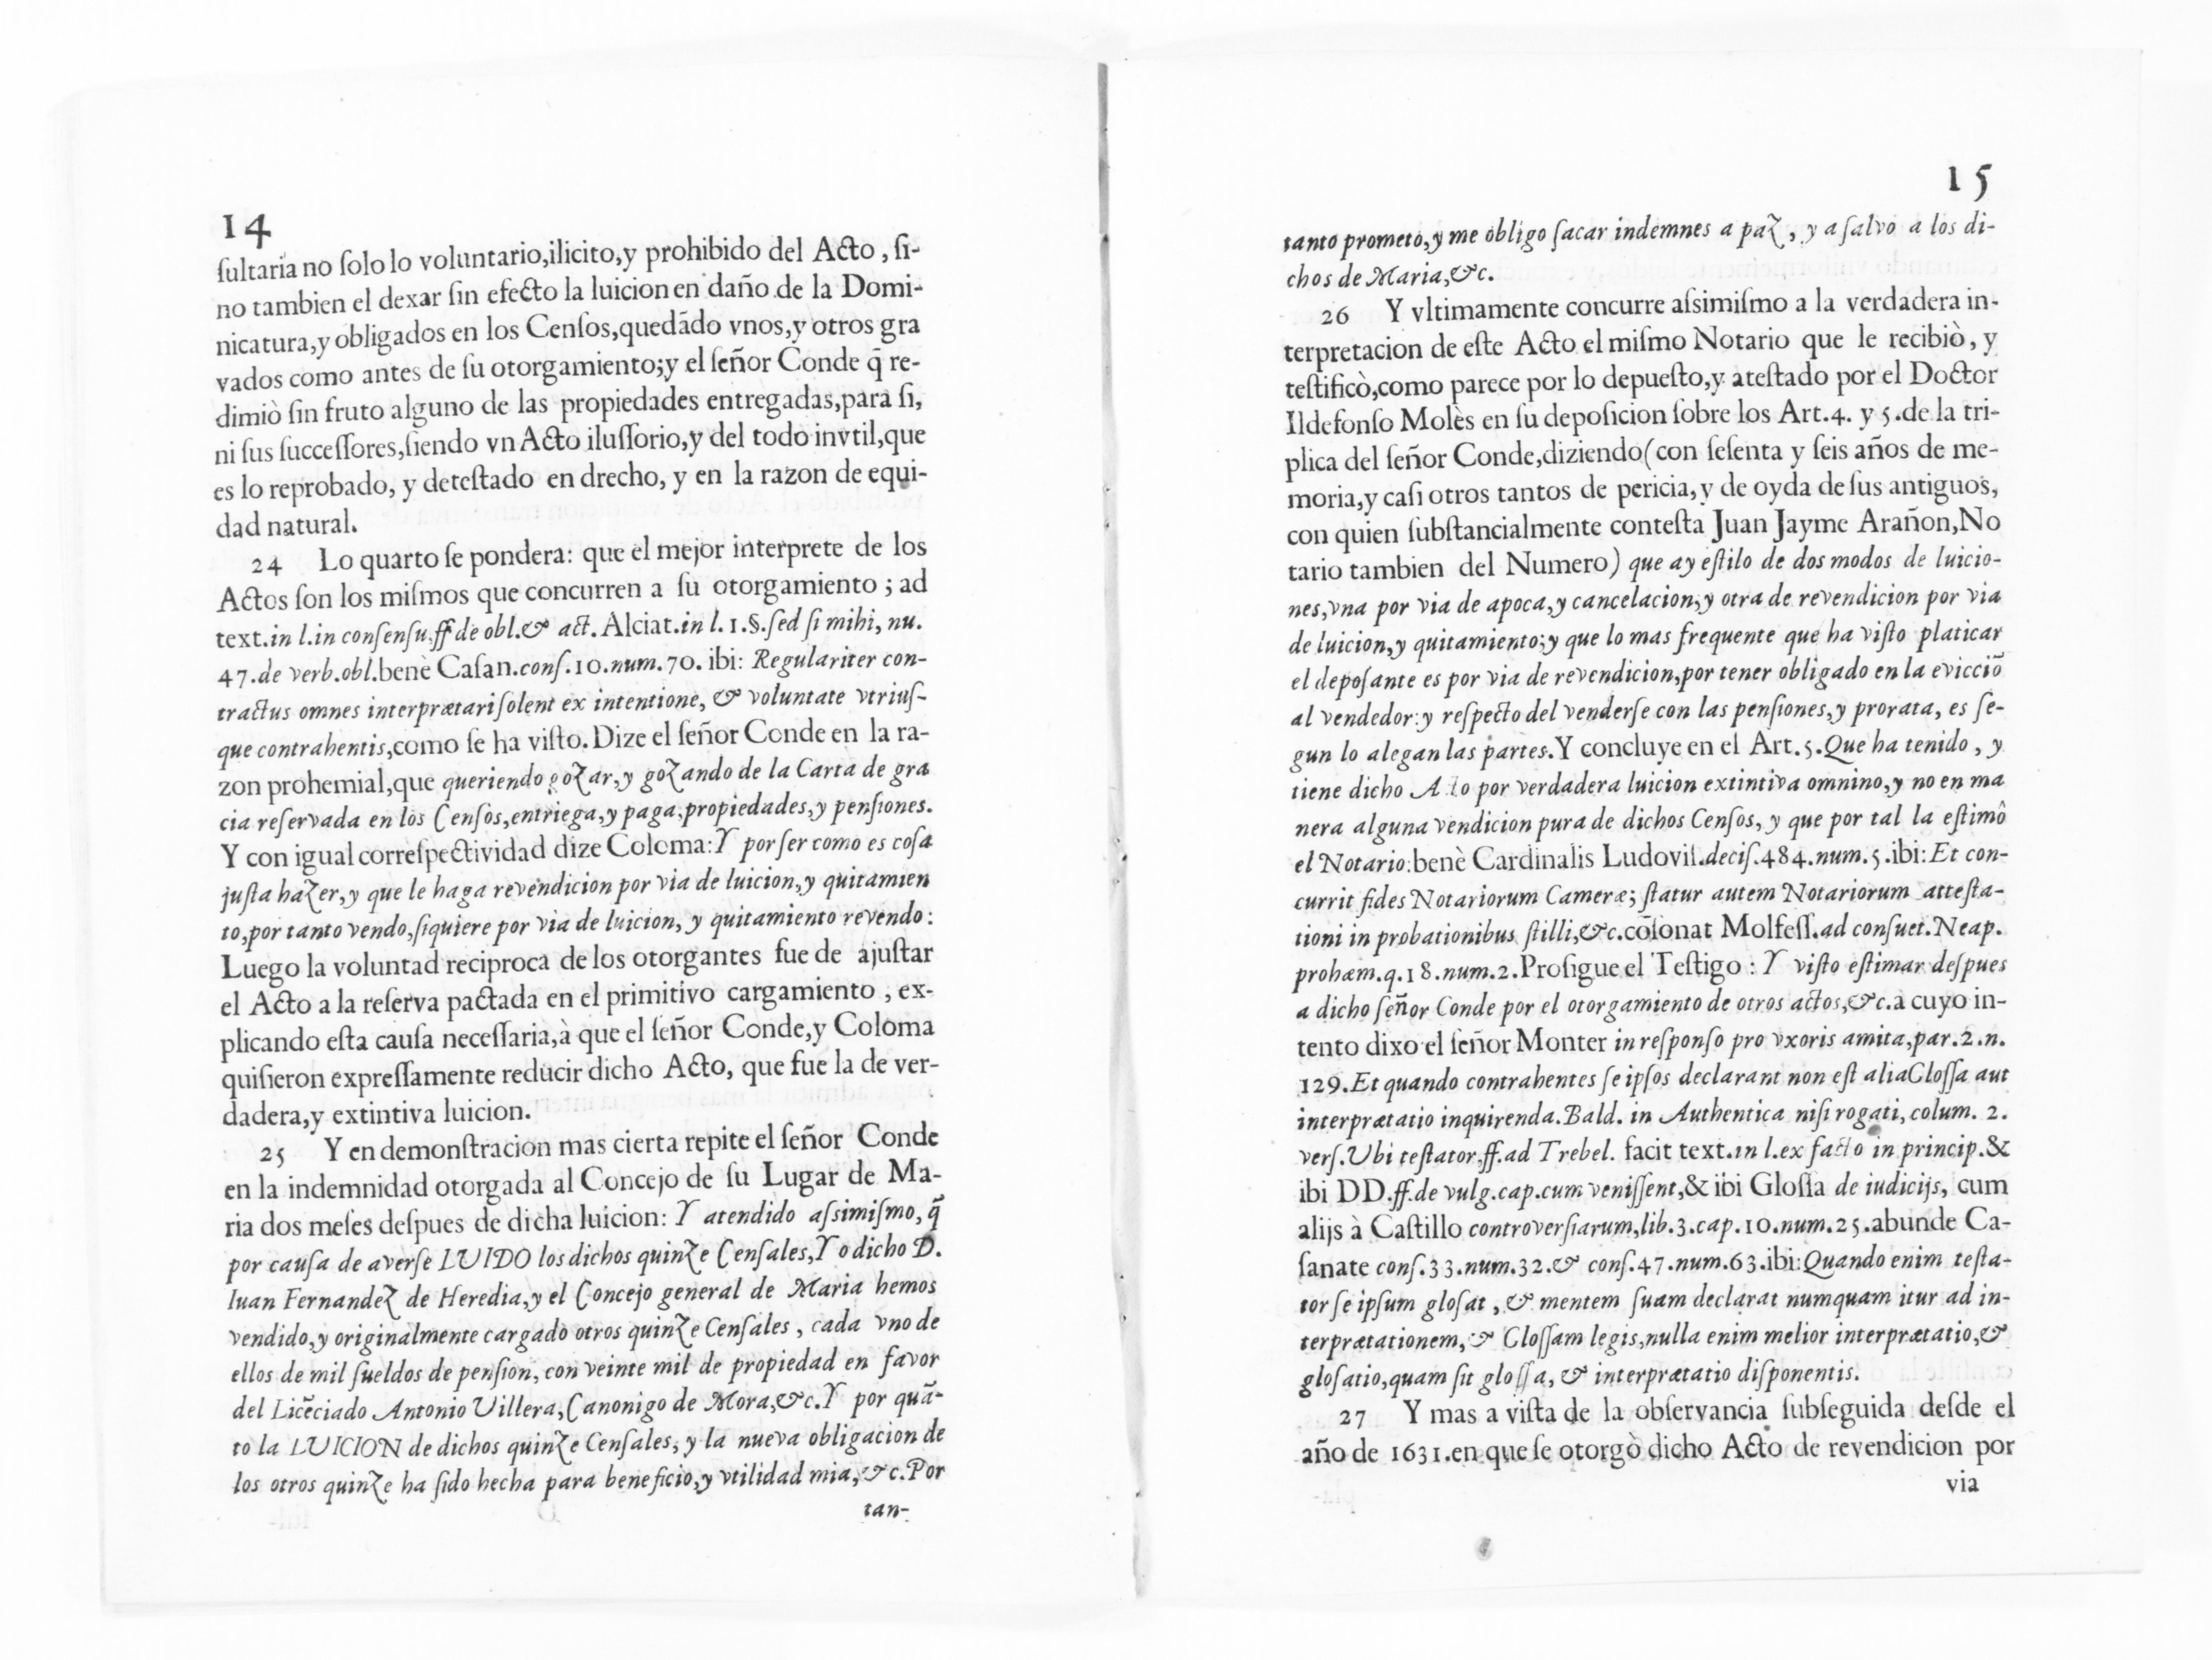 14
ſultaria no ſolo lo voluntario,ilicito,y prohibido del Acto , ſi-
no tambien el dexar ſin efecto la luicion en daño de la Domi-
nicatura,y obligados en los Cenſos,quedãdo vnos,y otros gra
vados como antes de ſu otorgamiento;y el ſeñor Conde q̃ re-
dimiò ſin fruto alguno de las propiedades entregadas,para ſi,
ni ſus ſucceſſores,ſiendo vn Acto iluſſorio,y del todo invtil,que
es lo reprobado, y deteſtado en drecho, y en la razon de equi-
dad natural.
24 Lo quarto ſe pondera: que el mejor interprete de los
Actos ſon los miſmos que concurren a ſu otorgamiento ; ad
text.in l.in conſenſu,ff de obl.& act. Alciat.in l.1.§.ſed ſi mihi, nu.
47.de verb.obl.benè Caſan.conſ.10.num.70. ibi: Regulariter con-
tractus omnes interprætari ſolent ex intentione, & voluntate vtriuſ-
que contrahentis,como ſe ha viſto. Dize el ſeñor Conde en la ra-
zon prohemial,que queriendo gozar,y gozando de la Carta de gra
cia reſervada en los Cenſos,entriega,y paga,propiedades,y penſiones.
Y con igual correſpectividad dize Coloma:Y por ſer como es coſa
juſta hazer,y que le haga revendicion por via de luicion,y quitamien
to,por tanto vendo,ſiquiere por via de luicion, y quitamiento revendo:
Luego la voluntad reciproca de los otorgantes fue de ajuſtar
el Acto a la reſerva pactada en el primitivo cargamiento , ex-
plicando eſta cauſa neceſſaria,à que el ſeñor Conde,y Coloma
quiſieron expreſſamente reducir dicho Acto, que fue la de ver-
dadera,y extintiva luicion.
25 Y en demonſtracion mas cierta repite el ſeñor Conde
en la indemnidad otorgada al Concejo de ſu Lugar de Ma-
ria dos meſes deſpues de dicha luicion: Y atendido aſsimiſmo, q̃
por cauſa de averſe LUIDO los dichos quinze Cenſales,Yo dicho D.
Iuan Fernandez de Heredia,y el Concejo general de Maria hemos
vendido,y originalmente cargado otros quinze Cenſales , cada vno de
ellos de mil ſueldos de penſion, con veinte mil de propiedad en favor
del Licẽciado Antonio Villera,Canonigo de Mora,&c.Y por quã-
to la LUICION de dichos quinze Cenſales, y la nueva obligacion de
los otros quinze ha ſido hecha para beneficio,y vtilidad mia,&c.Por
tan-
15
tanto prometo,y me obligo ſacar indemnes a paz , y a ſalvo a los di-
chos de Maria,&c.
26 Y vltimamente concurre aſsimiſmo a la verdadera in-
terpretacion de eſte Acto el miſmo Notario que le recibiò, y
teſtificò,como parece por lo depueſto,y ateſtado por el Doctor
Ildefonſo Molès en ſu depoſicion ſobre los Art.4. y 5.de la tri-
plica del ſeñor Conde,diziendo(con ſeſenta y ſeis años de me-
moria,y caſi otros tantos de pericia,y de oyda de ſus antiguos,
con quien ſubſtancialmente conteſta Juan Jayme Arañon,No
tario tambien del Numero) que ay eſtilo de dos modos de luicio-
nes,vna por via de apoca,y cancelacion,y otra de revendicion por via
de luicion,y quitamiento;y que lo mas frequente que ha viſto platicar
el depoſante es por via de revendicion,por tener obligado en la eviccio̅
al vendedor:y reſpecto del venderſe con las penſiones,y prorata, es ſe-
gun lo alegan las partes.Y concluye en el Art.5.Que ha tenido , y
tiene dicho Acto por verdadera luicion extintiva omnino,y no en ma
nera alguna vendicion pura de dichos Cenſos, y que por tal la eſtimô
el Notario:benè Cardinalis Ludoviſ.deciſ.484.num.5.ibi:Et con-
currit fides Notariorum Cameræ; ſtatur autem Notariorum atteſta-
tioni in probationibus ſtilli,&c.cõſonat Molfeſſ.ad conſuet.Neap.
prohæm.q.18.num.2.Proſigue el Teſtigo : Y viſto eſtimar deſpues
a dicho ſeñor Conde por el otorgamiento de otros actos,&c.à cuyo in-
tento dixo el ſeñor Monter in reſponſo pro vxoris amita,par.2.n.
129.Et quando contrahentes ſe ipſos declarant non eſt alia Gloſſa aut
interprætatio inquirenda.Bald. in Authentica niſi rogati, colum. 2.
verſ.Ubi teſtator.ff.ad Trebel. facit text.in l.ex facto in princip.&
ibi DD.ff.de vulg.cap.cum veniſſent,& ibi Gloſſa de iudicijs, cum
alijs à Caſtillo controverſiarum,lib.3.cap.10.num.25.abunde Ca-
ſanate conſ.33.num.32.& conſ.47.num.63.ibi:Quando enim teſta-
tor ſe ipſum gloſat , & mentem ſuam declarat numquam itur ad in-
terprætationem, & Gloſſam legis,nulla enim melior interprætatio,&
gloſatio,quam ſit gloſſa, & interprætatio diſponentis.
27 Y mas a viſta de la obſervancia ſubſeguida deſde el
año de 1631.en que ſe otorgò dicho Acto de revendicion por
via